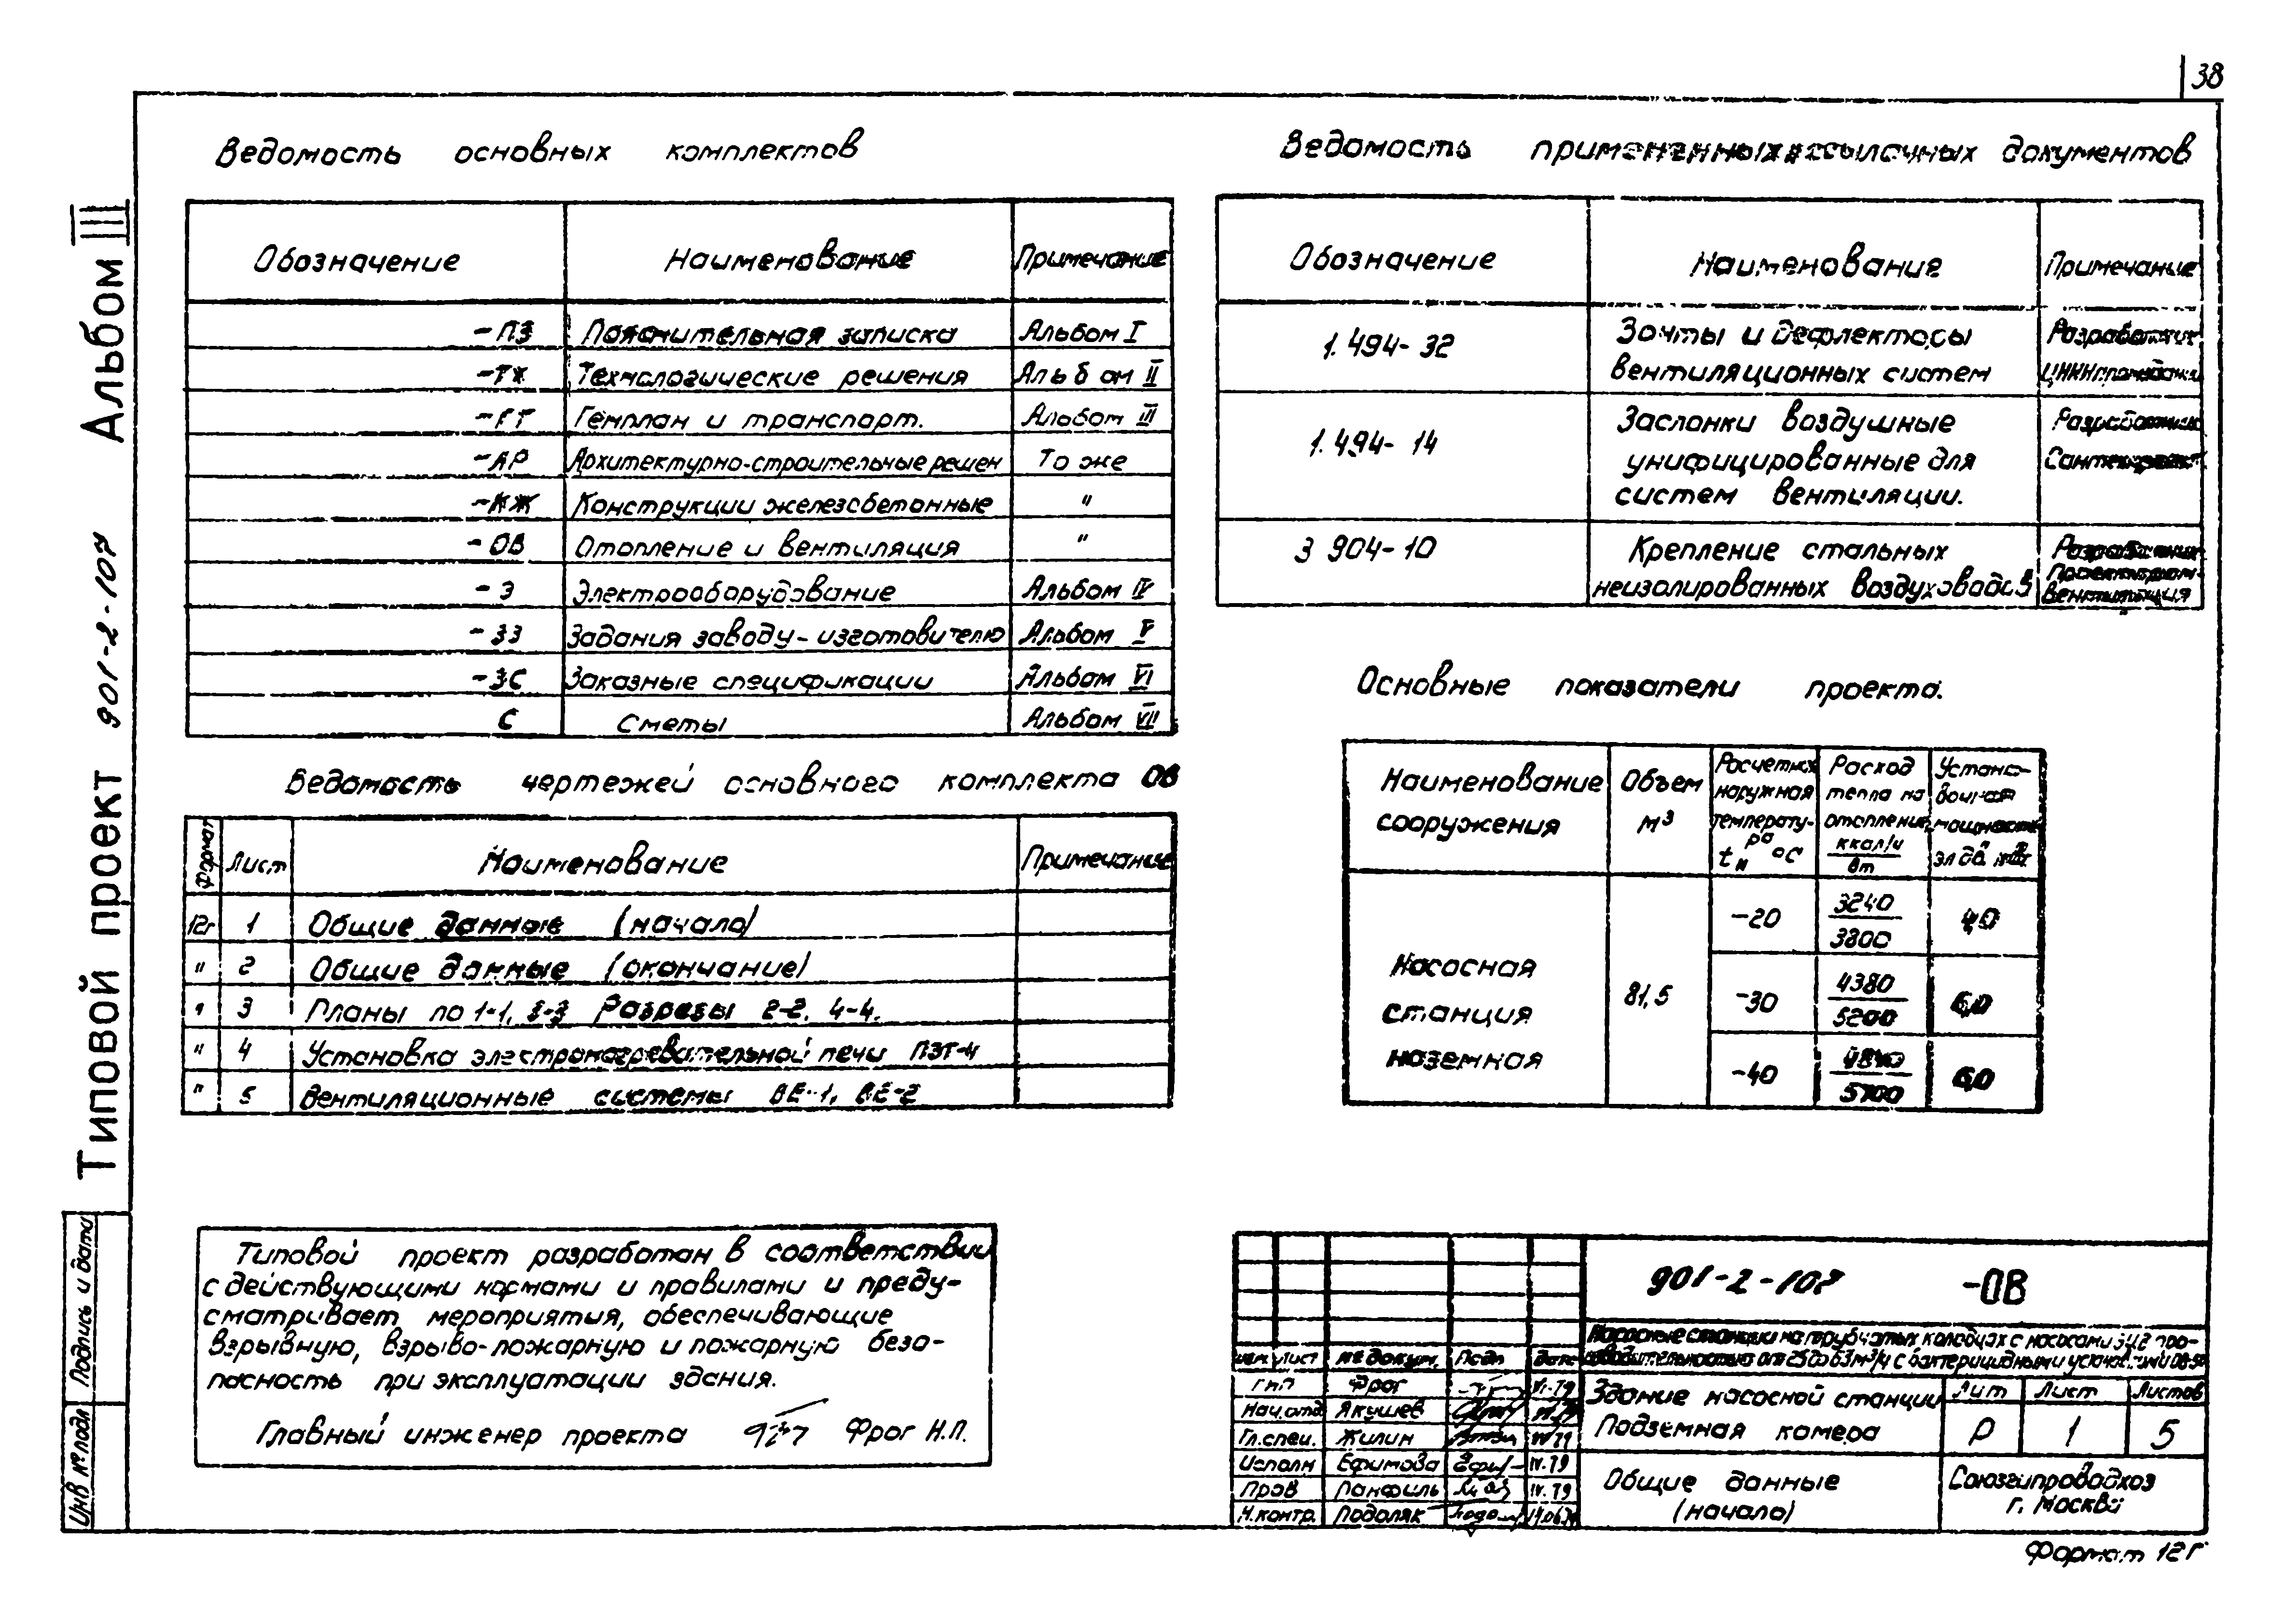 38
Типовой проект 901-2-107 Альбом III
Ведомость основных комплектов
Обозначение Наименование Примечание
-ПЗ Пояснительная записка Альбом I
-ТХ Технологические решения Альбом II
-ГТ Генплан и транспорт. Альбом III
-АР Архитектурно-строительные решен То же
-КЖ Конструкции железобетонные "
-ОВ Отопление и вентиляция "
-Э Электрооборудование Альбом IV
-ЗЗ Задания заводу-изготовителю Альбом V
-ЗС Заказные спецификации Альбом VI
С Сметы Альбом VII
Ведомость чертежей основного комплекта ОВ
Формат Лист Наименование Примечание
12г 1 Общие данные (начало)
" 2 Общие данные (окончание)
" 3 Планы по 1-1, 3-3 Разрезы 2-2, 4-4.
" 4 Установка электронагревательной печи ПЭТ-4
" 5 Вентиляционные системы ВЕ-1, ВЕ-2
Типовой проект разработан в соответствии
с действующими нормами и правилами и преду-
сматривает мероприятия, обеспечивающие
взрывную, взрыво-пожарную и пожарную безо-
пасность при эксплуатации здания.
Главный инженер проекта Фрог Н.П.
Ведомость примененных и ссылочных документов
Обозначение Наименование Примечание
1.494-32 Зонты и дефлекторы Разработчик
вентиляционных систем
1.494-14 Заслонки воздушные Разработчик
унифицированные для
систем вентиляции.
3 904-10 Крепление стальных Разработчик
неизолированных воздуховодов
Проектпром-
вентиляция
Основные показатели проекта.
Наименование Объем Расчетная Расход Устано-
наружная тепла на вочная
сооружения м³ температу- отопление мощность
ра ккал/ч эл дв квт
tн °С вт
Насосная станция наземная 81,5
-20 3240 / 3800 4,0
-30 4380 / 5200 6,0
-40 / 5700 6,0
901-2-107 -ОВ
Насосные станции на трубчатых колодцах с насосами ЭЦВ про-
изводительностью от 25 до 63 м³/ч с бактерицидными установками ОВ-50
изм лист № докум. Подп Дата
ГИП Фрог VI.79
Нач.отд Якушев
Гл.спец. Жилин
Исполн Ефимова IV.79
Пров Панфиль IV.79
Н.контр. Подоляк
Здание насосной станции Лит Лист Листов
Подземная камера Р 1 5
Общие данные Союзгипроводхоз
(начало) г. Москва
Инв № подл Подпись и дата
Формат 12Г